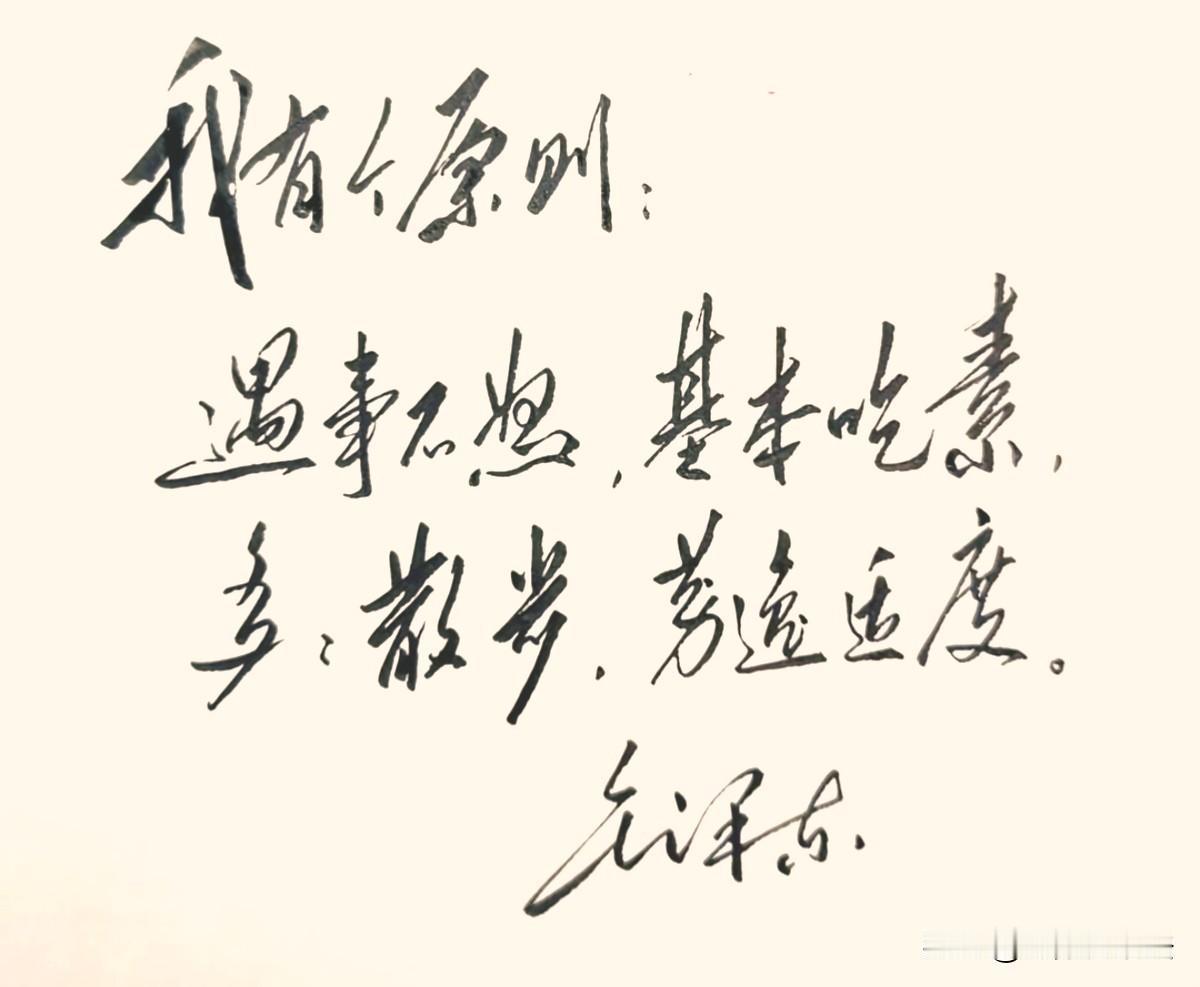 我有个原则：
遇事不怒，基本吃素，
多：散步，劳逸适度。
毛泽东